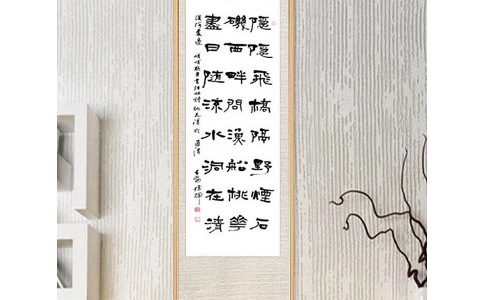 隱隱飛橋隔野煙石
磯西畔問漁船桃華
盡日隨流水洞在清
溪何處邊